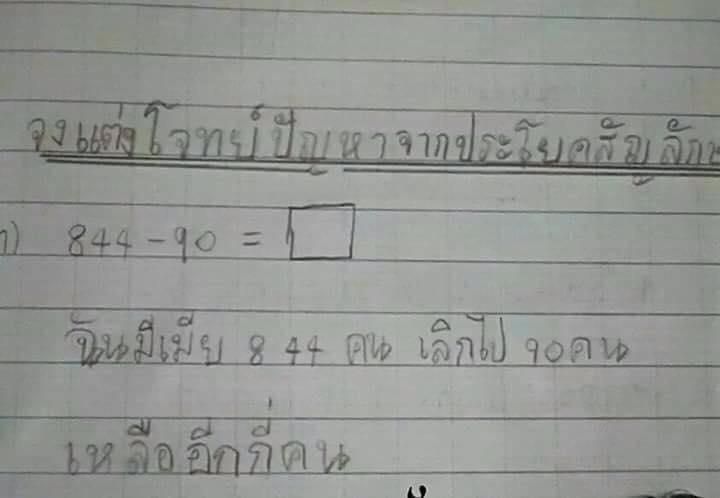 จงแต่งโจทย์ปัญหาจากประโยคสัญลักษ
1) 844 - 90 =
ฉันมีเมีย 844 คน เลิกไป 90 คน
เหลืออีกกี่คน